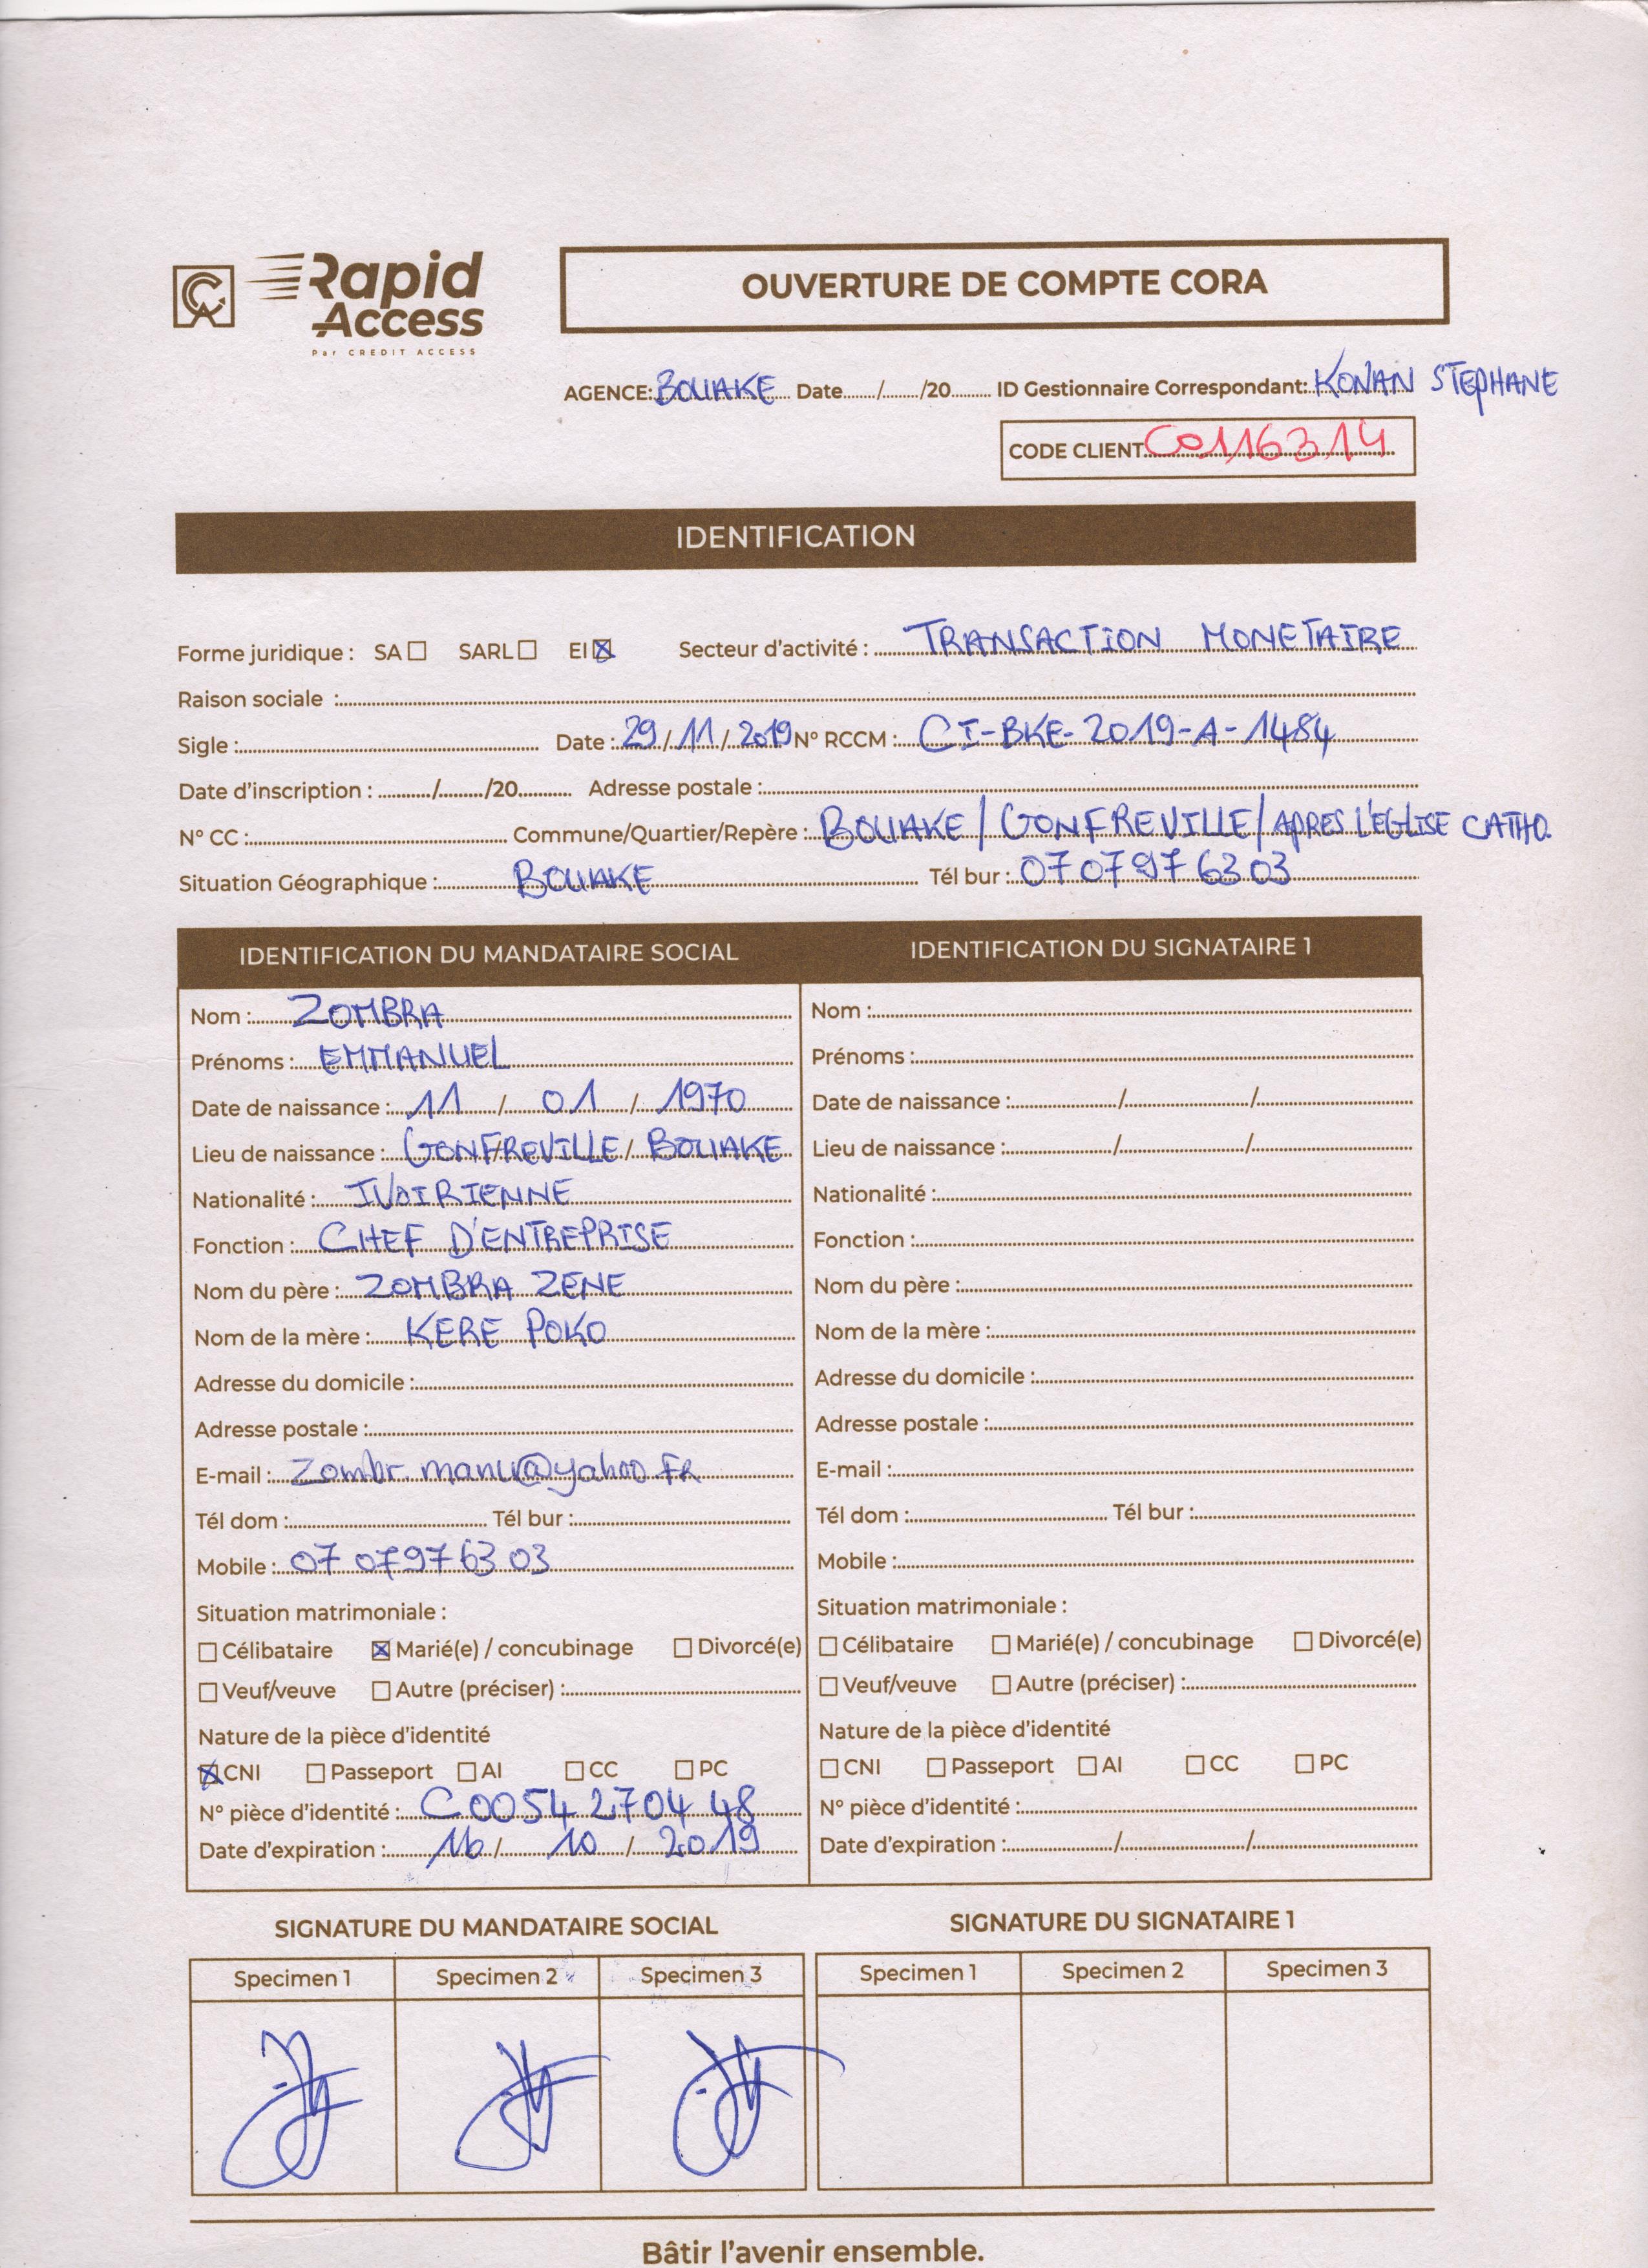 CA Rapid Access
Par CREDIT ACCESS
OUVERTURE DE COMPTE CORA
AGENCE: BOUAKE Date......./......../20......... ID Gestionnaire Correspondant: KONAN STEPHANE
CODE CLIENT C0116314
IDENTIFICATION
Forme juridique : SA ☐ SARL ☐ EI ☒ Secteur d'activité : TRANSACTION MONETAIRE
Raison sociale :
Sigle : Date : 29/11/2019 N° RCCM : CI-BKE-2019-A-1484
Date d'inscription : ........../........./20.......... Adresse postale :
N° CC : Commune/Quartier/Repère : BOUAKE/GONFREVILLE/APRES L'EGLISE CATHO.
Situation Géographique : BOUAKE Tél bur : 07 07 97 63 03
IDENTIFICATION DU MANDATAIRE SOCIAL
Nom : ZOMBRA
Prénoms : EMMANUEL
Date de naissance : 11 / 01 / 1970
Lieu de naissance : GONFREVILLE / BOUAKE
Nationalité : IVOIRIENNE
Fonction : CHEF D'ENTREPRISE
Nom du père : ZOMBRA ZENE
Nom de la mère : KERE POKO
Adresse du domicile :
Adresse postale :
E-mail : Zombr.manu@yahoo.FR
Tél dom : Tél bur :
Mobile : 07 07 97 63 03
Situation matrimoniale :
☐ Célibataire ☒ Marié(e) / concubinage ☐ Divorcé(e)
☐ Veuf/veuve ☐ Autre (préciser) :
Nature de la pièce d'identité
☒ CNI ☐ Passeport ☐ AI ☐ CC ☐ PC
N° pièce d'identité : C0054 2704 48
Date d'expiration : 16 / 10 / 2019
IDENTIFICATION DU SIGNATAIRE 1
Nom :
Prénoms :
Date de naissance : / /
Lieu de naissance : / /
Nationalité :
Fonction :
Nom du père :
Nom de la mère :
Adresse du domicile :
Adresse postale :
E-mail :
Tél dom : Tél bur :
Mobile :
Situation matrimoniale :
☐ Célibataire ☐ Marié(e) / concubinage ☐ Divorcé(e)
☐ Veuf/veuve ☐ Autre (préciser) :
Nature de la pièce d'identité
☐ CNI ☐ Passeport ☐ AI ☐ CC ☐ PC
N° pièce d'identité :
Date d'expiration : / /
SIGNATURE DU MANDATAIRE SOCIAL
Specimen 1 Specimen 2 Specimen 3
SIGNATURE DU SIGNATAIRE 1
Specimen 1 Specimen 2 Specimen 3
Bâtir l'avenir ensemble.